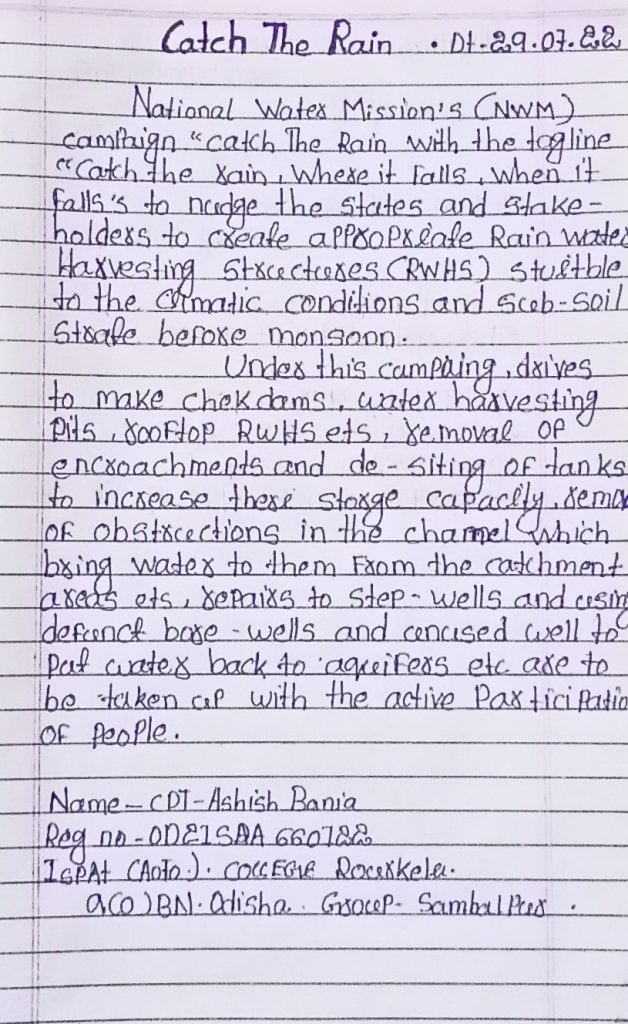 Catch The Rain . Dt-29.07.22
National Water Mission's (NWM)
campaign "catch The Rain with the tagline
"Catch the rain, Where it falls, when it
falls's to nudge the states and stake-
holders to create appropreate Rain Water
Harvesting Structures (RWHS) stuitble
to the Climatic conditions and sub-soil
strate before monsoon.
Under this campaing, drives
to make chekdams, water harvesting
pits, rooftop RWHS ets, removal of
encroachments and de-siting of tanks
to increase there storge capacity, remo
of obstructions in the channel which
bring water to them from the catchment
areas ets, repairs to step-wells and using
defunct bore-wells and unused well to
put water back to aquifers etc are to
be taken up with the active Participatio
of people.
Name - CDT-Ashish Bania
Reg no - OD21SAA 660122
ISPAt (AoTo.). COLLEGE Rourkela.
9(O)BN. Odisha. Group- Sambalpur .